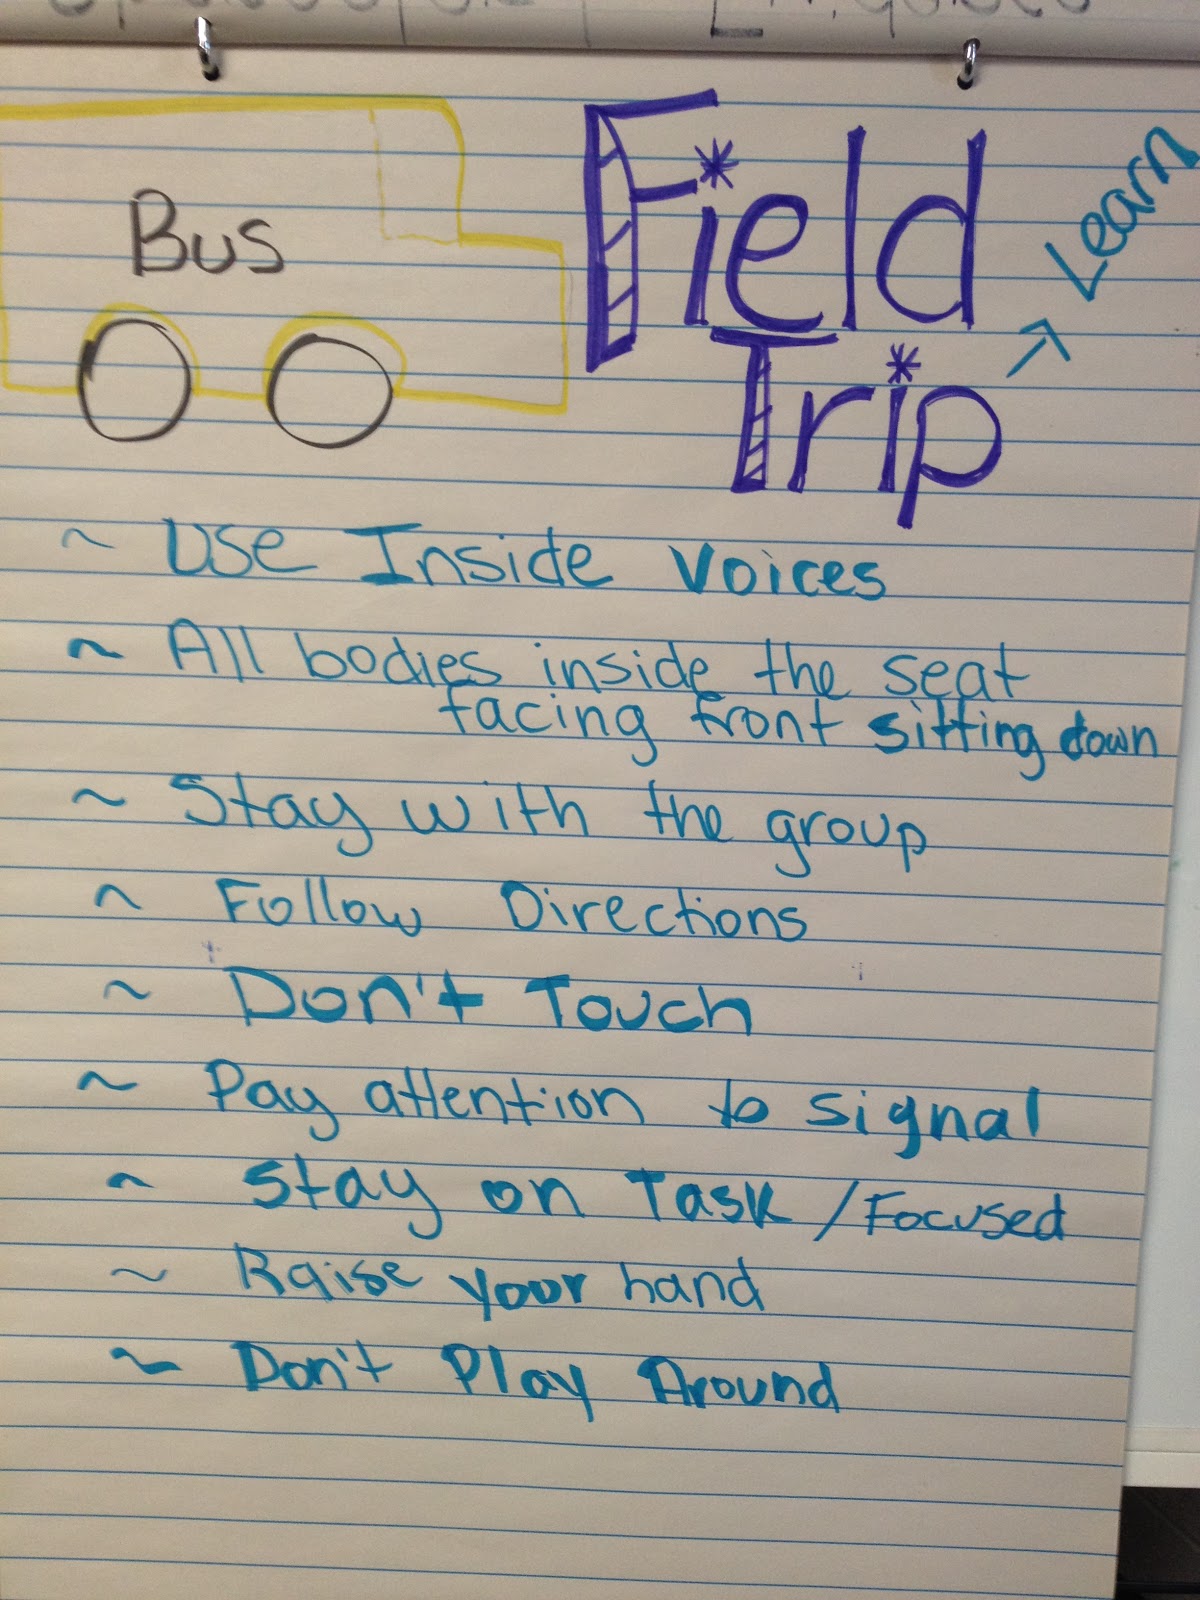 Bus
Field
Trip
→ Learn
~ Use Inside Voices
~ All bodies inside the seat
facing front sitting down
~ Stay with the group
~ Follow Directions
~ Don't Touch
~ Pay attention to signal
~ Stay on Task / Focused
~ Raise your hand
~ Don't Play Around